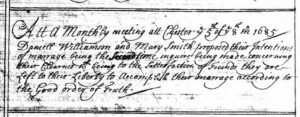 Att a Monthly meeting att Chister ye 5th of ye 8th m 1685
Daniell Williamson and Mary Smith proposed their Intentions
of marage being the second time inquire being made concerning
their Clearnes & being to the Sattisfaction of Friends they are
Left to their Liberty to Accomplish their marage according to
the Good order of Truth